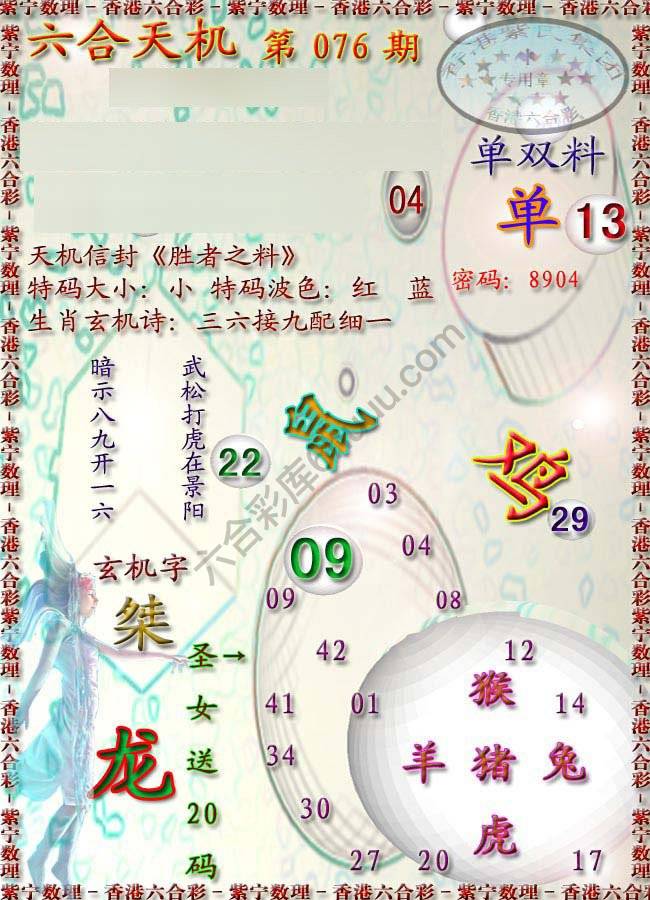 紫宁数理－香港六合彩－紫宁数理－香港六合彩－紫宁数理－香港六合彩－紫宁数理
六合天机 第 076 期
香港紫宁集团
专用章
香港六合彩
单双料
04
单 13
天机信封《胜者之料》
特码大小：小 特码波色：红 蓝
密码：8904
生肖玄机诗：三六接九配细一
武松打虎在景阳
暗示八九开一六
鼠
鸡
22
29
03
09
04
09
08
玄机字
桀
圣女送20码
→
龙
42
12
41
01
猴
14
34
羊 猪 兔
30
虎
27
20
17
紫宁数理－香港六合彩－紫宁数理－香港六合彩－紫宁数理－香港六合彩－紫宁数理